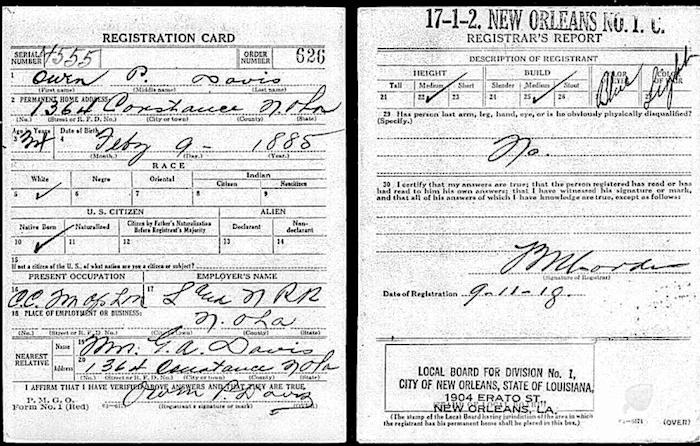 REGISTRATION CARD
SERIAL NUMBER 1555 ORDER NUMBER 626
1 Owen P. Davis
(First name) (Middle name) (Last name)
2 PERMANENT HOME ADDRESS:
1364 Constance N.O. La
(No.) (Street or R. F. D. No.) (City or town) (County) (State)
Age in Years Date of Birth
3 4 Feby 9 - 1885
(Month.) (Day.) (Year.)
RACE
White Negro Oriental Indian
Citizen Noncitizen
5 ✓ 6 7 8 9
U. S. CITIZEN ALIEN
Native Born Naturalized Citizen by Father's Naturalization Before Registrant's Majority Declarant Non-declarant
10 ✓ 11 12 13 14
15
If not a citizen of the U. S., of what nation are you a citizen or subject?
PRESENT OCCUPATION EMPLOYER'S NAME
16 17 L and N RR
18 PLACE OF EMPLOYMENT OR BUSINESS:
N. O. La
(No.) (Street or R. F. D. No.) (City or town) (County) (State)
NEAREST RELATIVE
Name 19 G. A. Davis
Address 20 1364 Constance N O La
(No.) (Street or R. F. D. No.) (City or town) (County) (State)
I AFFIRM THAT I HAVE VERIFIED ABOVE ANSWERS AND THAT THEY ARE TRUE
P. M. G. O.
Form No. 1 (Red) Owen P. Davis
(Registrant's signature or mark)
17-1-2. NEW ORLEANS NO. 1. C.
REGISTRAR'S REPORT
DESCRIPTION OF REGISTRANT
HEIGHT BUILD COLOR OF EYES COLOR OF HAIR
Tall Medium Short Slender Medium Stout Blue Light
21 22 ✓ 23 24 25 ✓ 26
29 Has person lost arm, leg, hand, eye, or is he obviously physically disqualified?
(Specify.)
No.
30 I certify that my answers are true; that the person registered has read or has
had read to him his own answers; that I have witnessed his signature or mark,
and that all of his answers of which I have knowledge are true, except as follows:
(Signature of Registrar)
Date of Registration 9-11-18.
LOCAL BOARD FOR DIVISION No. 1,
CITY OF NEW ORLEANS, STATE OF LOUISIANA,
1904 ERATO ST.,
NEW ORLEANS, LA.
(The stamp of the Local Board having jurisdiction of the area in which
the registrant has his permanent home shall be placed in this box.)
(OVER)